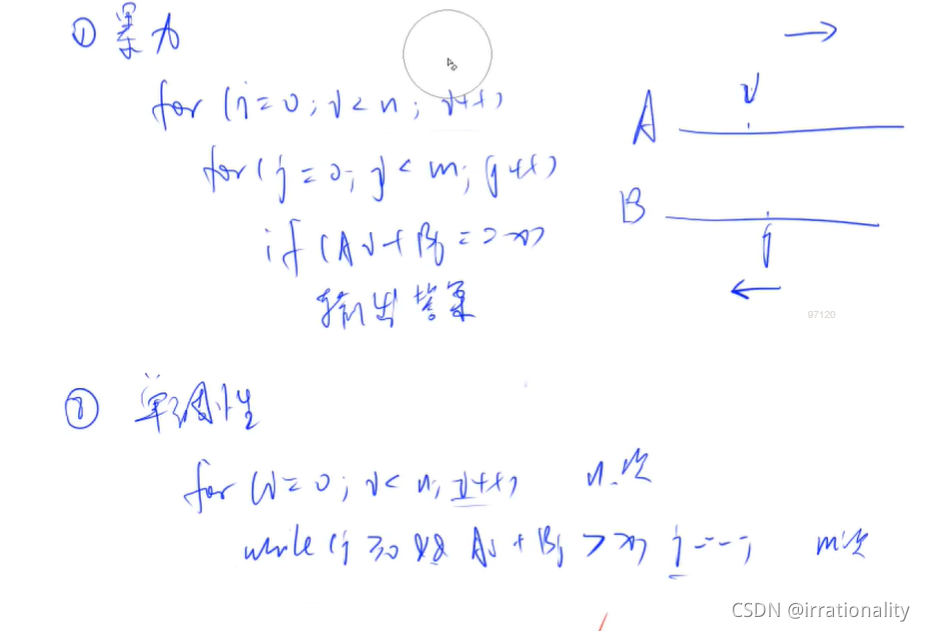 ① 暴力
for (i=0; i<n; i++)
for (j=0; j<m; j++)
if (Ai+Bj==x)
输出答案
A
i
B
j
97120
② 单调性
for (i=0; i<n; i++) n次
while (j≥0 && Ai+Bj>x) j--; m次
CSDN @irrationality